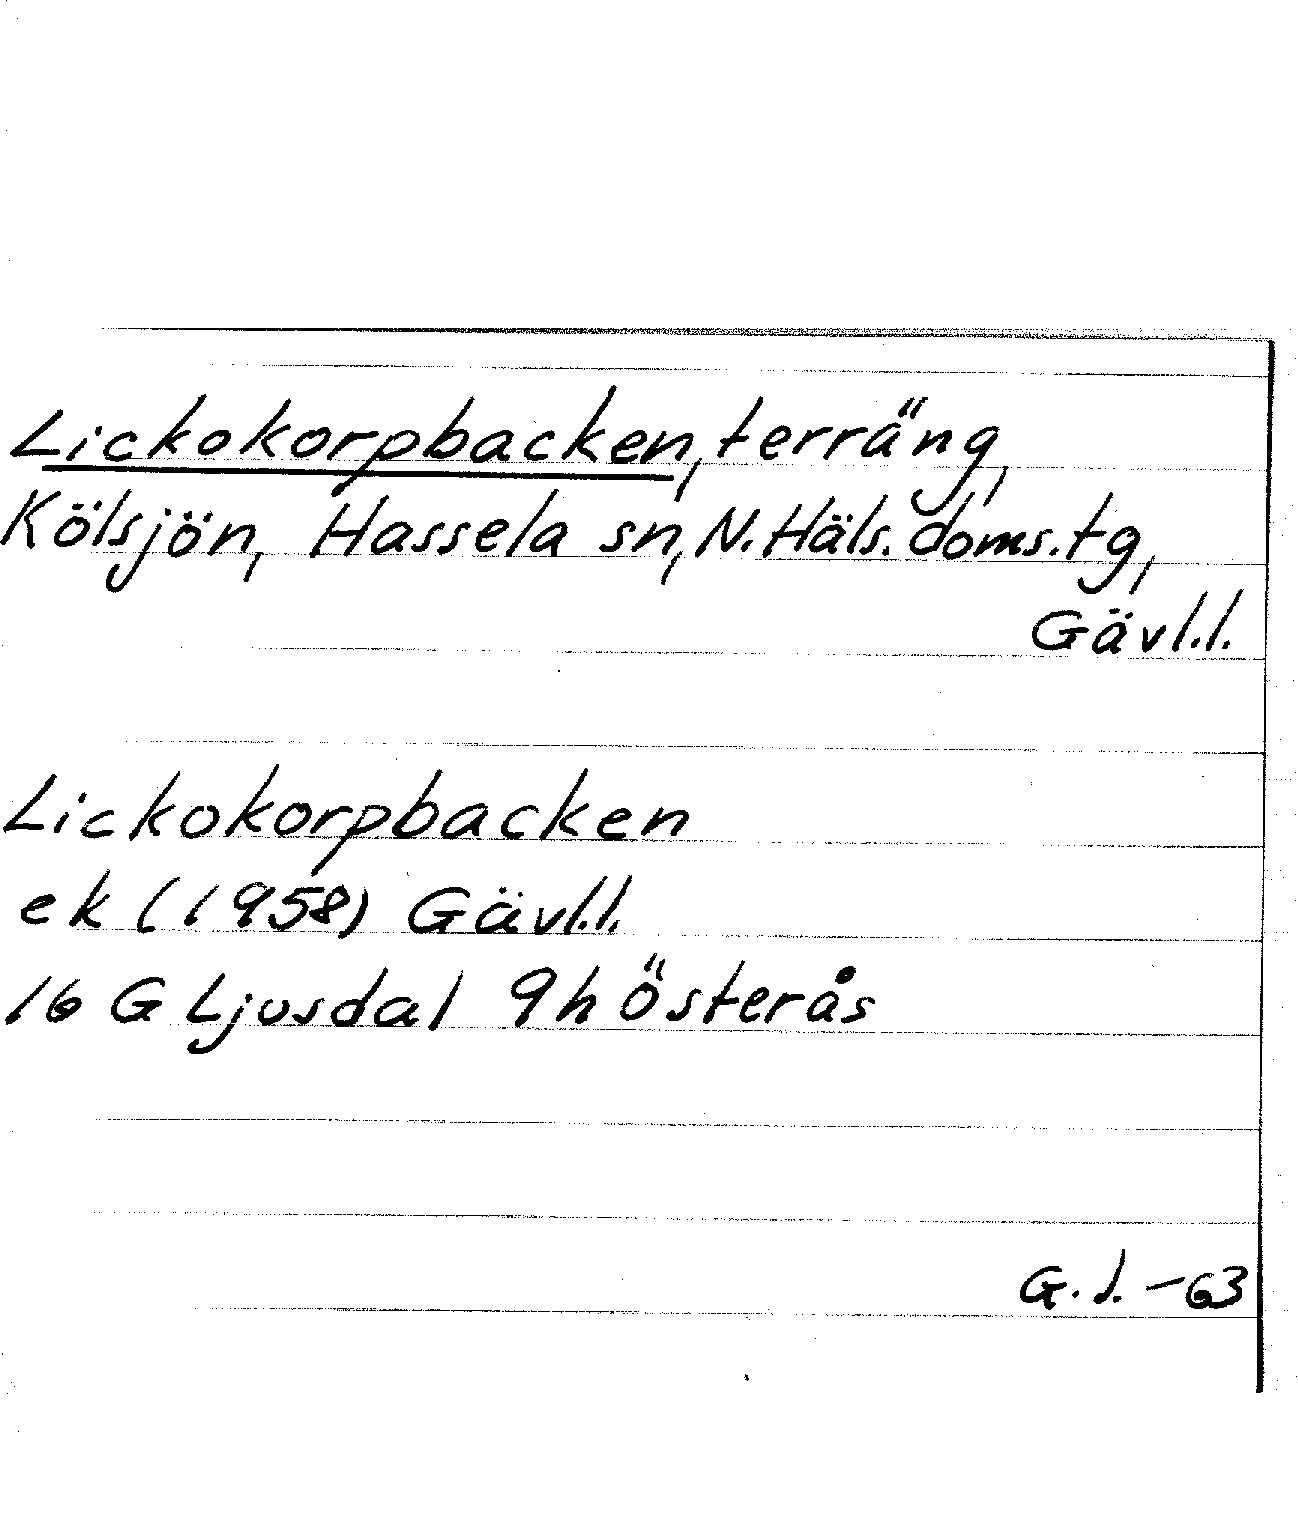 Lickokorpbacken, terräng,
Kölsjön, Hassela sn, N. Häls. doms. tg,
Gävl.l.
Lickokorpbacken
ek (1958) Gävl.l.
16 G Ljusdal 9h Österås
G. J. -63